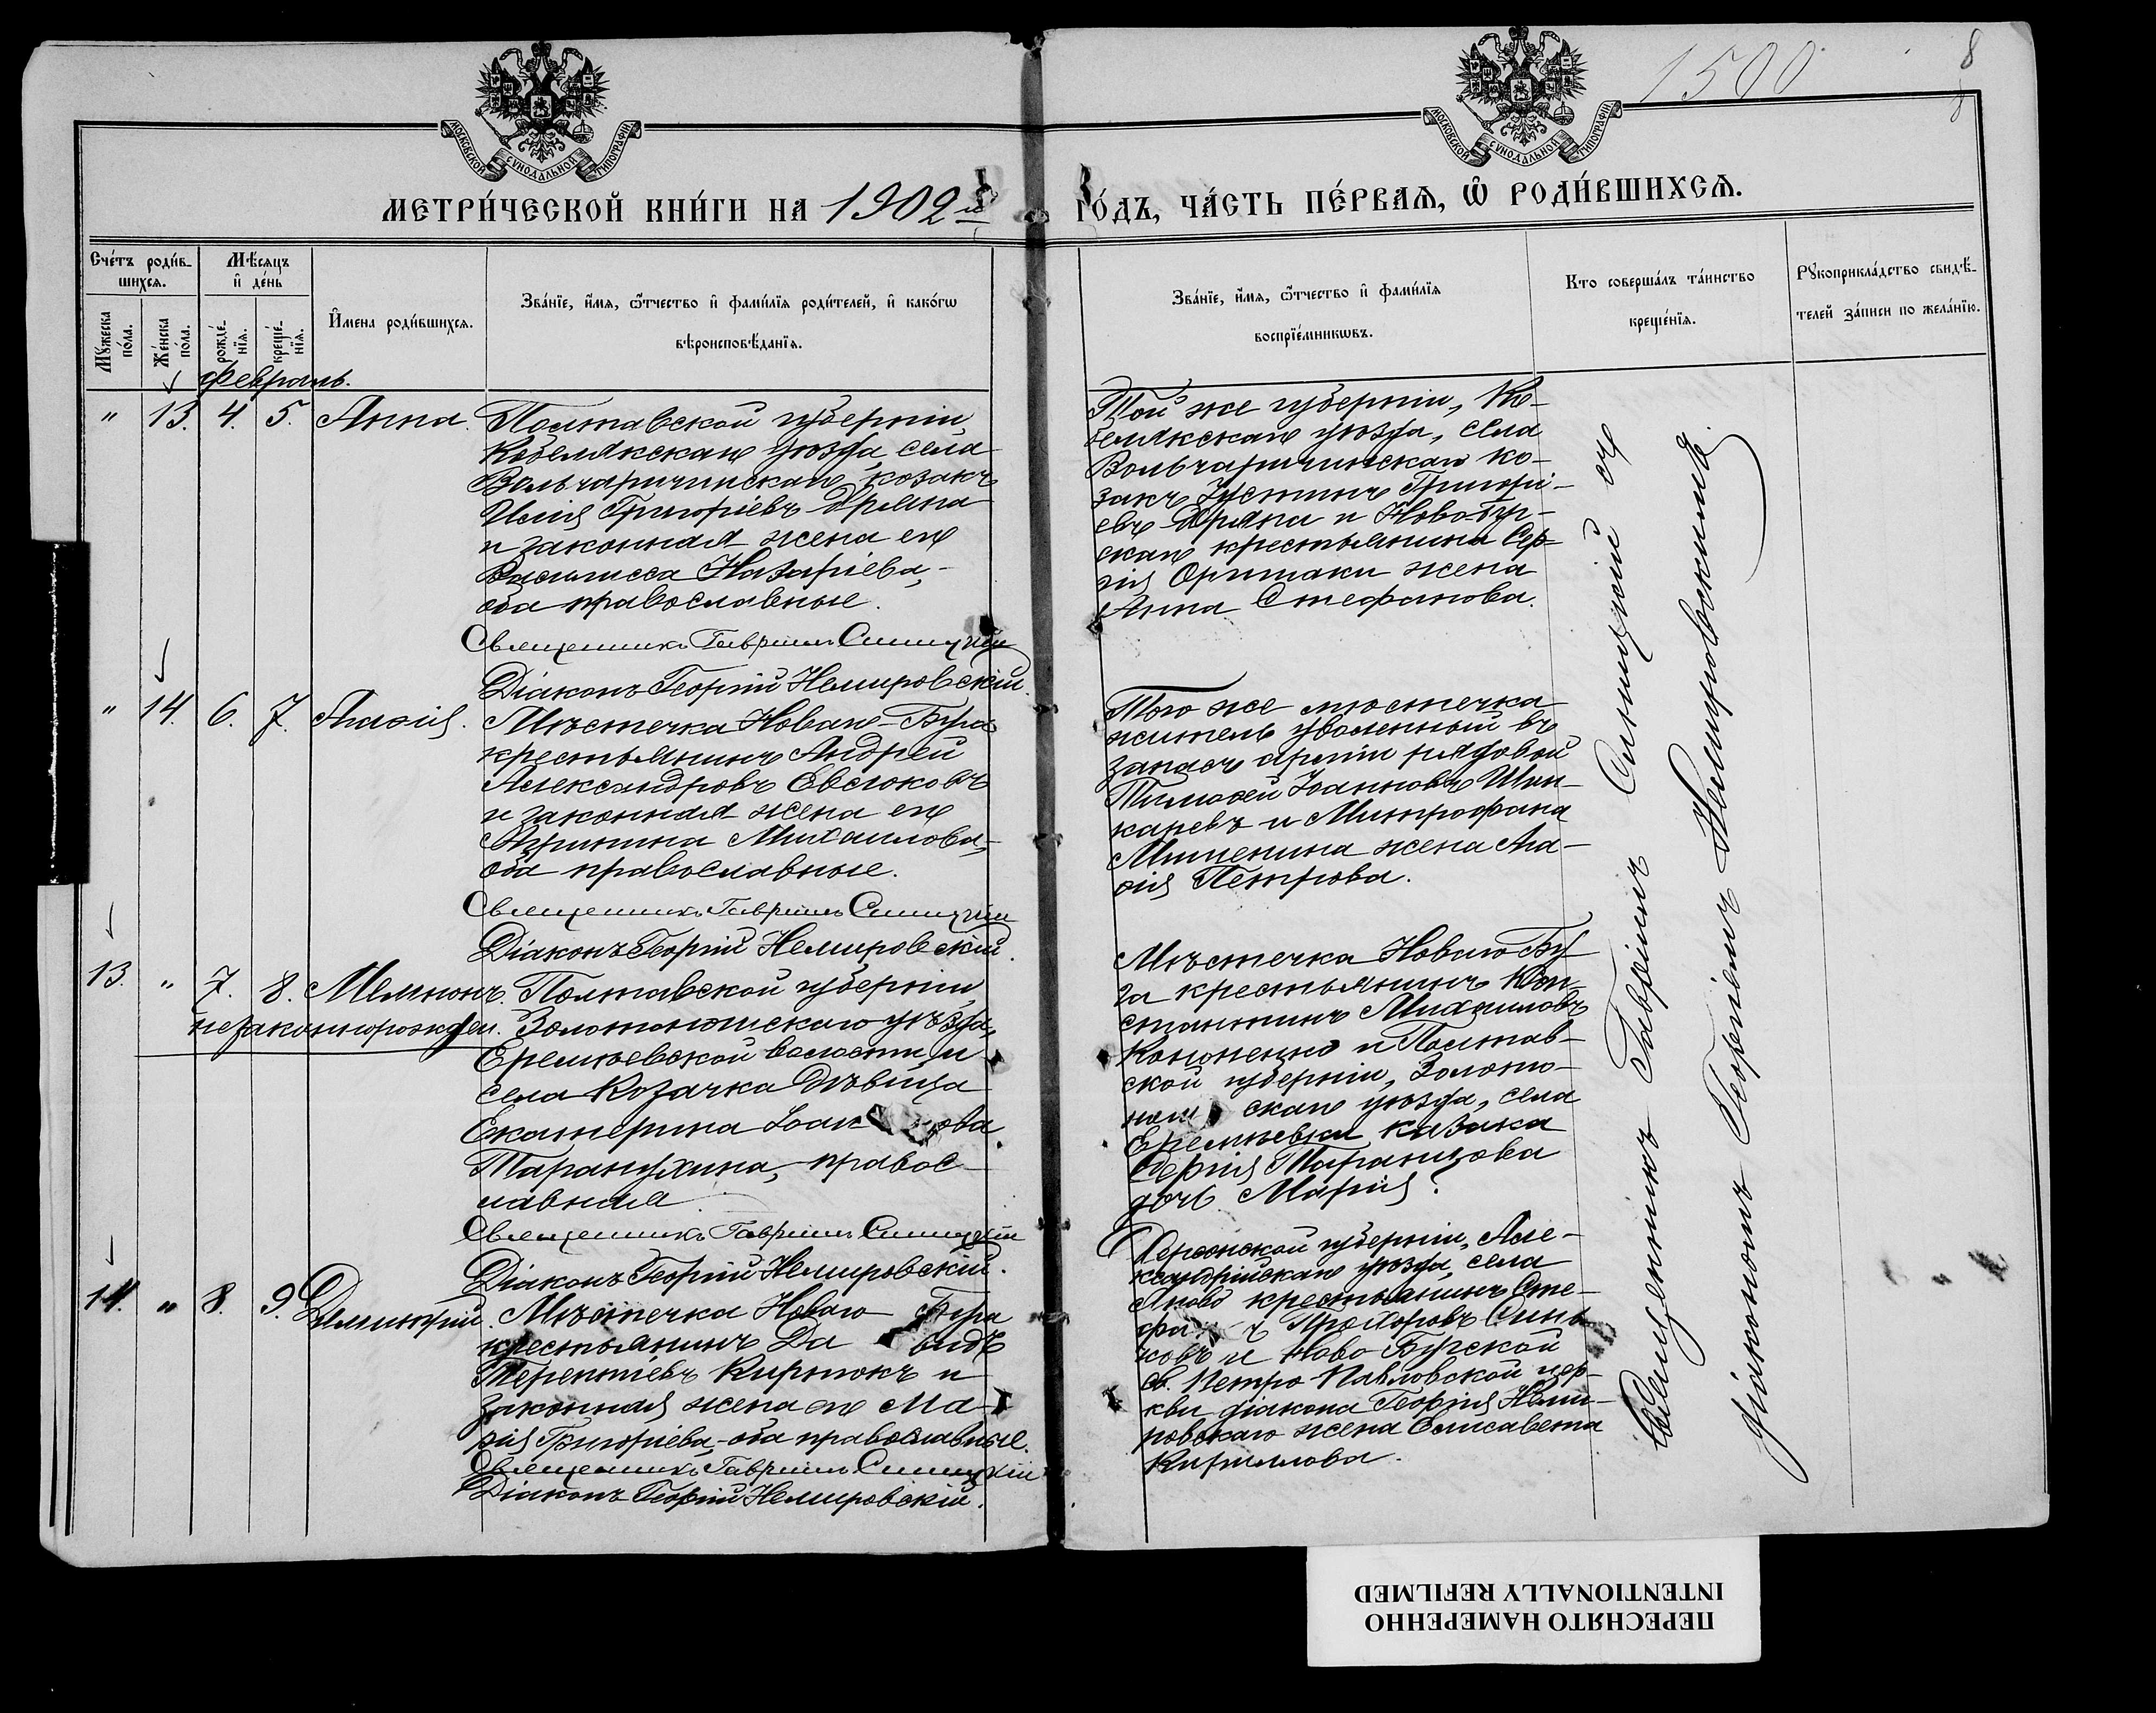 1500
8
МОСКОВСКОЙ СѴНОДАЛЬНОЙ ТИПОГРАФІИ.
МОСКОВСКОЙ СѴНОДАЛЬНОЙ ТИПОГРАФІИ.
МЕТРИ́ЧЕСКОЙ КНИ́ГИ НА 1902 й ГО́ДЪ, ЧА́СТЬ ПЕ́РВАѦ, Ѿ РОДИ́ВШИХСѦ.
Сче́тъ роди́в-
шихсѧ.
Мѣ́сѧцъ
и҆ де́нь
Мꙋ́жеска по́ла.
Же́нска по́ла.
рожде́-нїѧ.
креще́-нїѧ.
И҆мена роди́вшихсѧ.
Зва́нїе, и҆́мѧ, ѻ҆́тчество и҆ фами́лїѧ роди́телей, и҆ како́гѡ
вѣроисповѣ́данїѧ.
Зва́нїе, и҆́мѧ, ѻ҆́тчество и҆ фами́лїѧ
воспрїе́мникѡвъ.
Кто соверша́лъ та́инство
креще́нїѧ.
Рꙋкоприкла́дство свидѣ́-
телей за́писи по жела́нїю.
Февраль.
" 13. 4. 5. Анна.
Полтавской губерніи,
Кобелякскаго уѣзда, села
козакъ
Илія Григоріевъ Дряпа
и законная жена его
Василисса Назаріева,-
оба православные.
Священникъ Гавріилъ Синицкій
Діаконъ Георгій Немировскій.
Той же губерніи, Ко-
белякскаго уѣзда, села
ко-
закъ Іустинъ Григорі-
евъ Дряпа и Ново-Буг-
скаго крестьянина Сер-
гія жена
Анна Стефанова.
" 14. 6. 7. Агаѳія.
Мѣстечка Новаго-Буга
крестьянинъ Андрей
Александровъ Евсюковъ
и законная жена его
Михаилова,-
оба православные.
Священникъ Гавріилъ Синицкій
Діаконъ Георгій Немировскій.
Того же мѣстечка
житель уволенный въ
запасъ арміи рядовой
Тимоѳей Іоанновъ Шин-
каревъ и Митрофана
Мишенина жена Ага-
ѳія Петрова.
13. " 7. 8. Мемнонъ.
незаконнорожден.
Полтавской губерніи,
Золотоношскаго уѣзда,
Еремѣевской волости и
села козачка дѣвица
Екатерина
Таранухина,- правос-
лавная.
Священникъ Гавріилъ Синицкій
Діаконъ Георгій Немировскій.
Мѣстечка Новаго Бу-
га крестьянинъ Кон-
стантинъ Михаиловъ
Кононенко и Полтав-
ской губерніи, Золото-
нош скаго уѣзда, села
Еремѣевки казака
Сергія
дочь Марія.
14. " 8. 9. Димитрій.
Мѣстечка Новаго Буга
крестьянинъ Да видъ
Терентіевъ Кирпокъ и
законная жена его Ма-
рія Григоріева,-оба православные.
Священникъ Гавріилъ Синицкій
Діаконъ Георгій Немировскій.
Херсонской губерніи, Але-
ксандрійскаго уѣзда, села
крестьянинъ Сте-
фа ъ Прохоровъ Синь-
ковъ и Ново-Бугской
св. Петро-Павловской цер-
кви діакона Георгія Неми-
ровскаго жена Елисавета
Кириллова.
Священникъ Гавріилъ Синицкій съ
Діакономъ Георгіемъ Немировскимъ.
ПЕРЕСНЯТО НАМЕРЕННО
INTENTIONALLY REFILMED